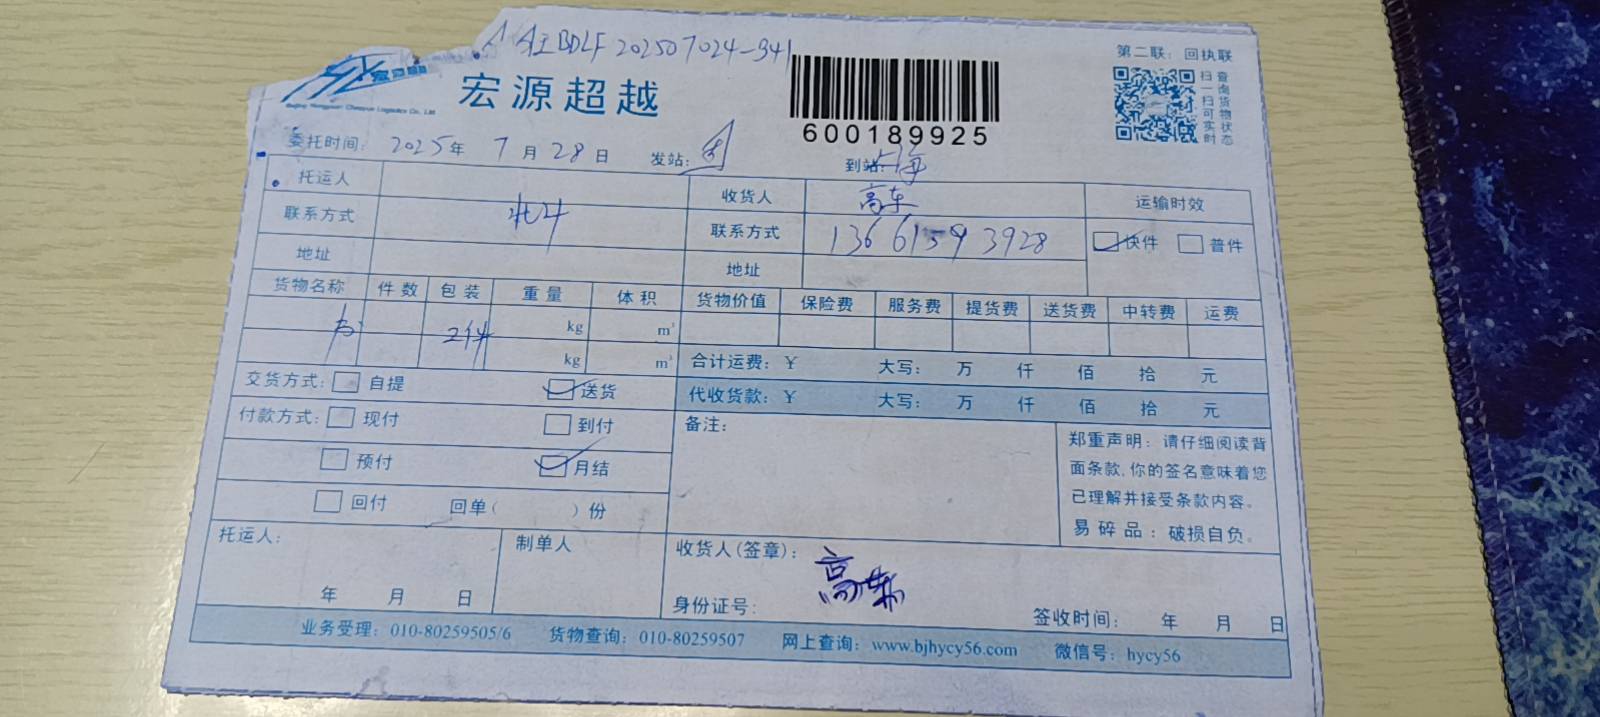 AIBDLF202507024-341
宏源超越
Beijing Hongyuan Chaoyue Logistics Co., Ltd
600189925
第二联：回执联
扫一扫可实时
查询货物状态
委托时间：2025年7月28日 发站： 到站：上海
托运人 收货人 高东 运输时效
联系方式 北斗 联系方式 13661593928 快件 普件
地址 地址
货物名称 件数 包装 重量 体积 货物价值 保险费 服务费 提货费 送货费 中转费 运费
书 2件 kg m³
kg m³ 合计运费：¥ 大写： 万 仟 佰 拾 元
交货方式： 自提 送货 代收货款：¥ 大写： 万 仟 佰 拾 元
付款方式： 现付 到付 备注：
预付 月结
回付 回单（ ）份
郑重声明：请仔细阅读背
面条款,你的签名意味着您
已理解并接受条款内容。
易碎品：破损自负。
托运人： 制单人 收货人(签章)： 高东
年 月 日 身份证号： 签收时间： 年 月 日
业务受理：010-80259505/6 货物查询：010-80259507 网上查询：www.bjhycy56.com 微信号：hycy56